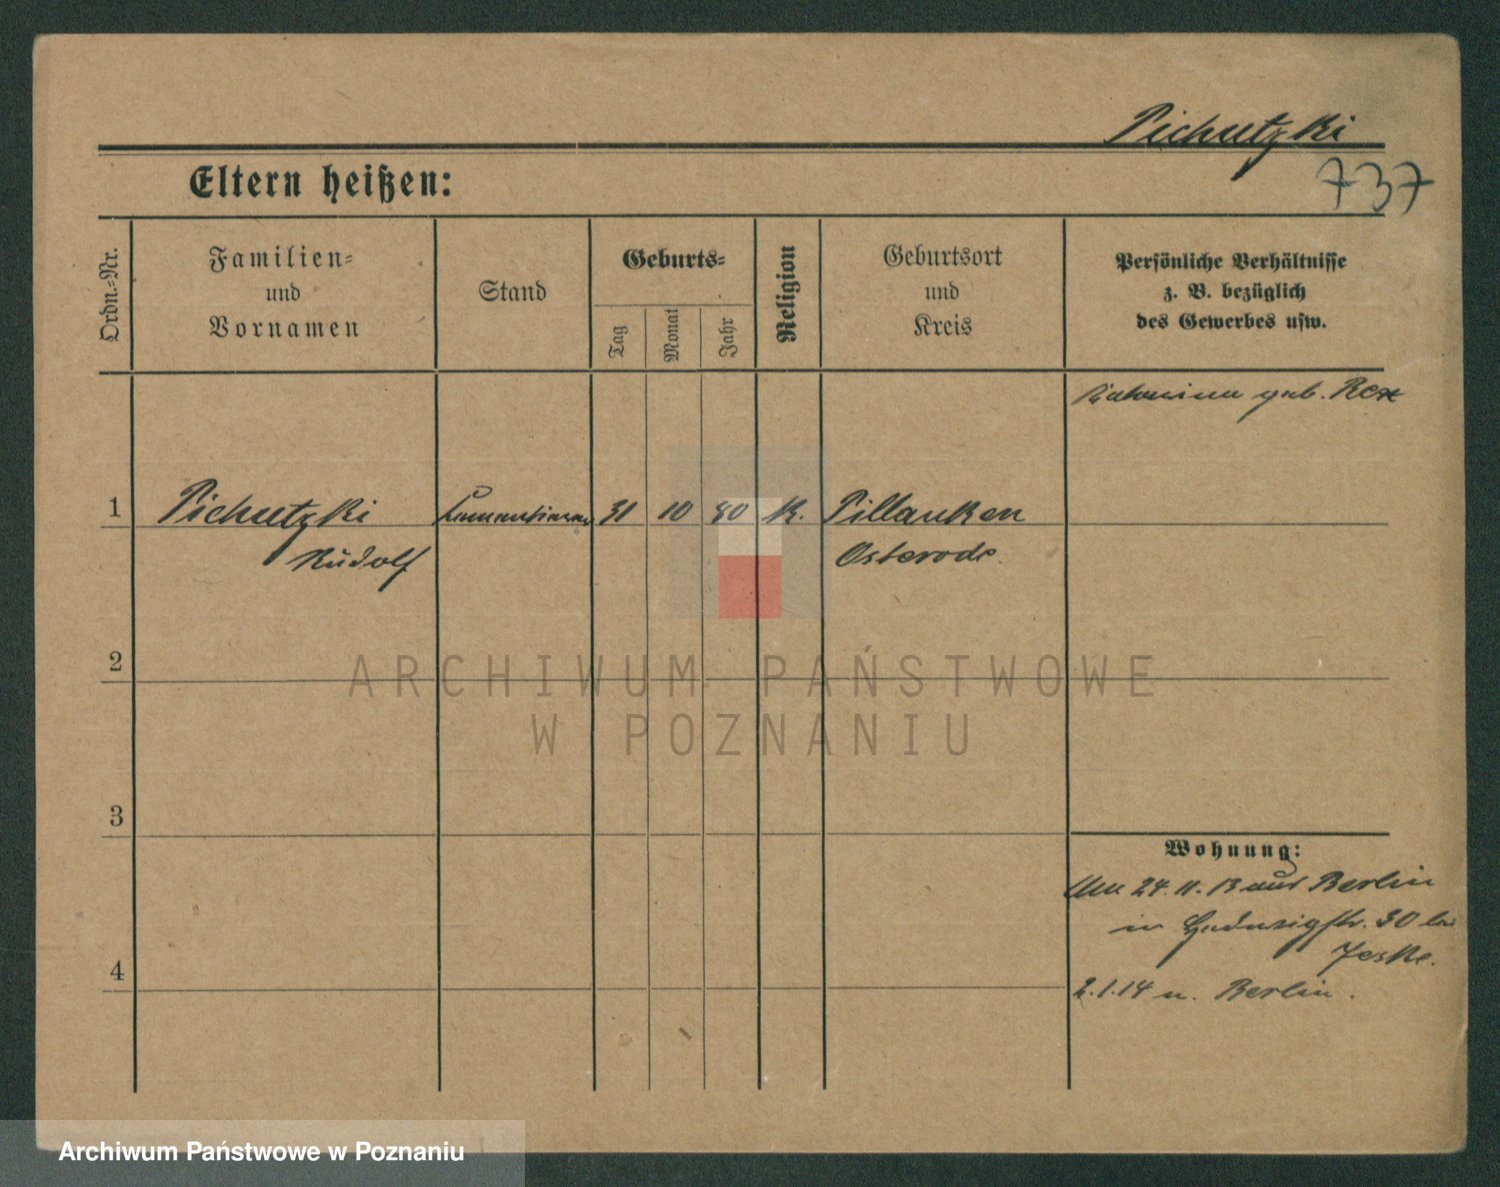 Pichutzki
737
Eltern heißen:
Ordn.-Nr.
Familien-
und
Vornamen
Stand
Geburts-
Tag
Monat
Jahr
Religion
Geburtsort
und
Kreis
Persönliche Verhältnisse
z. B. bezüglich
des Gewerbes usw.
geb. Rex
1
Pichutzki
31 10 80 K. Pillauken
Rudolf
Osterode.
2
3
4
Wohnung:
Am 24.11.13 aus Berlin
in 30 bei
Jeske.
2.1.14 n. Berlin.
ARCHIWUM PAŃSTWOWE
W POZNANIU
Archiwum Państwowe w Poznaniu